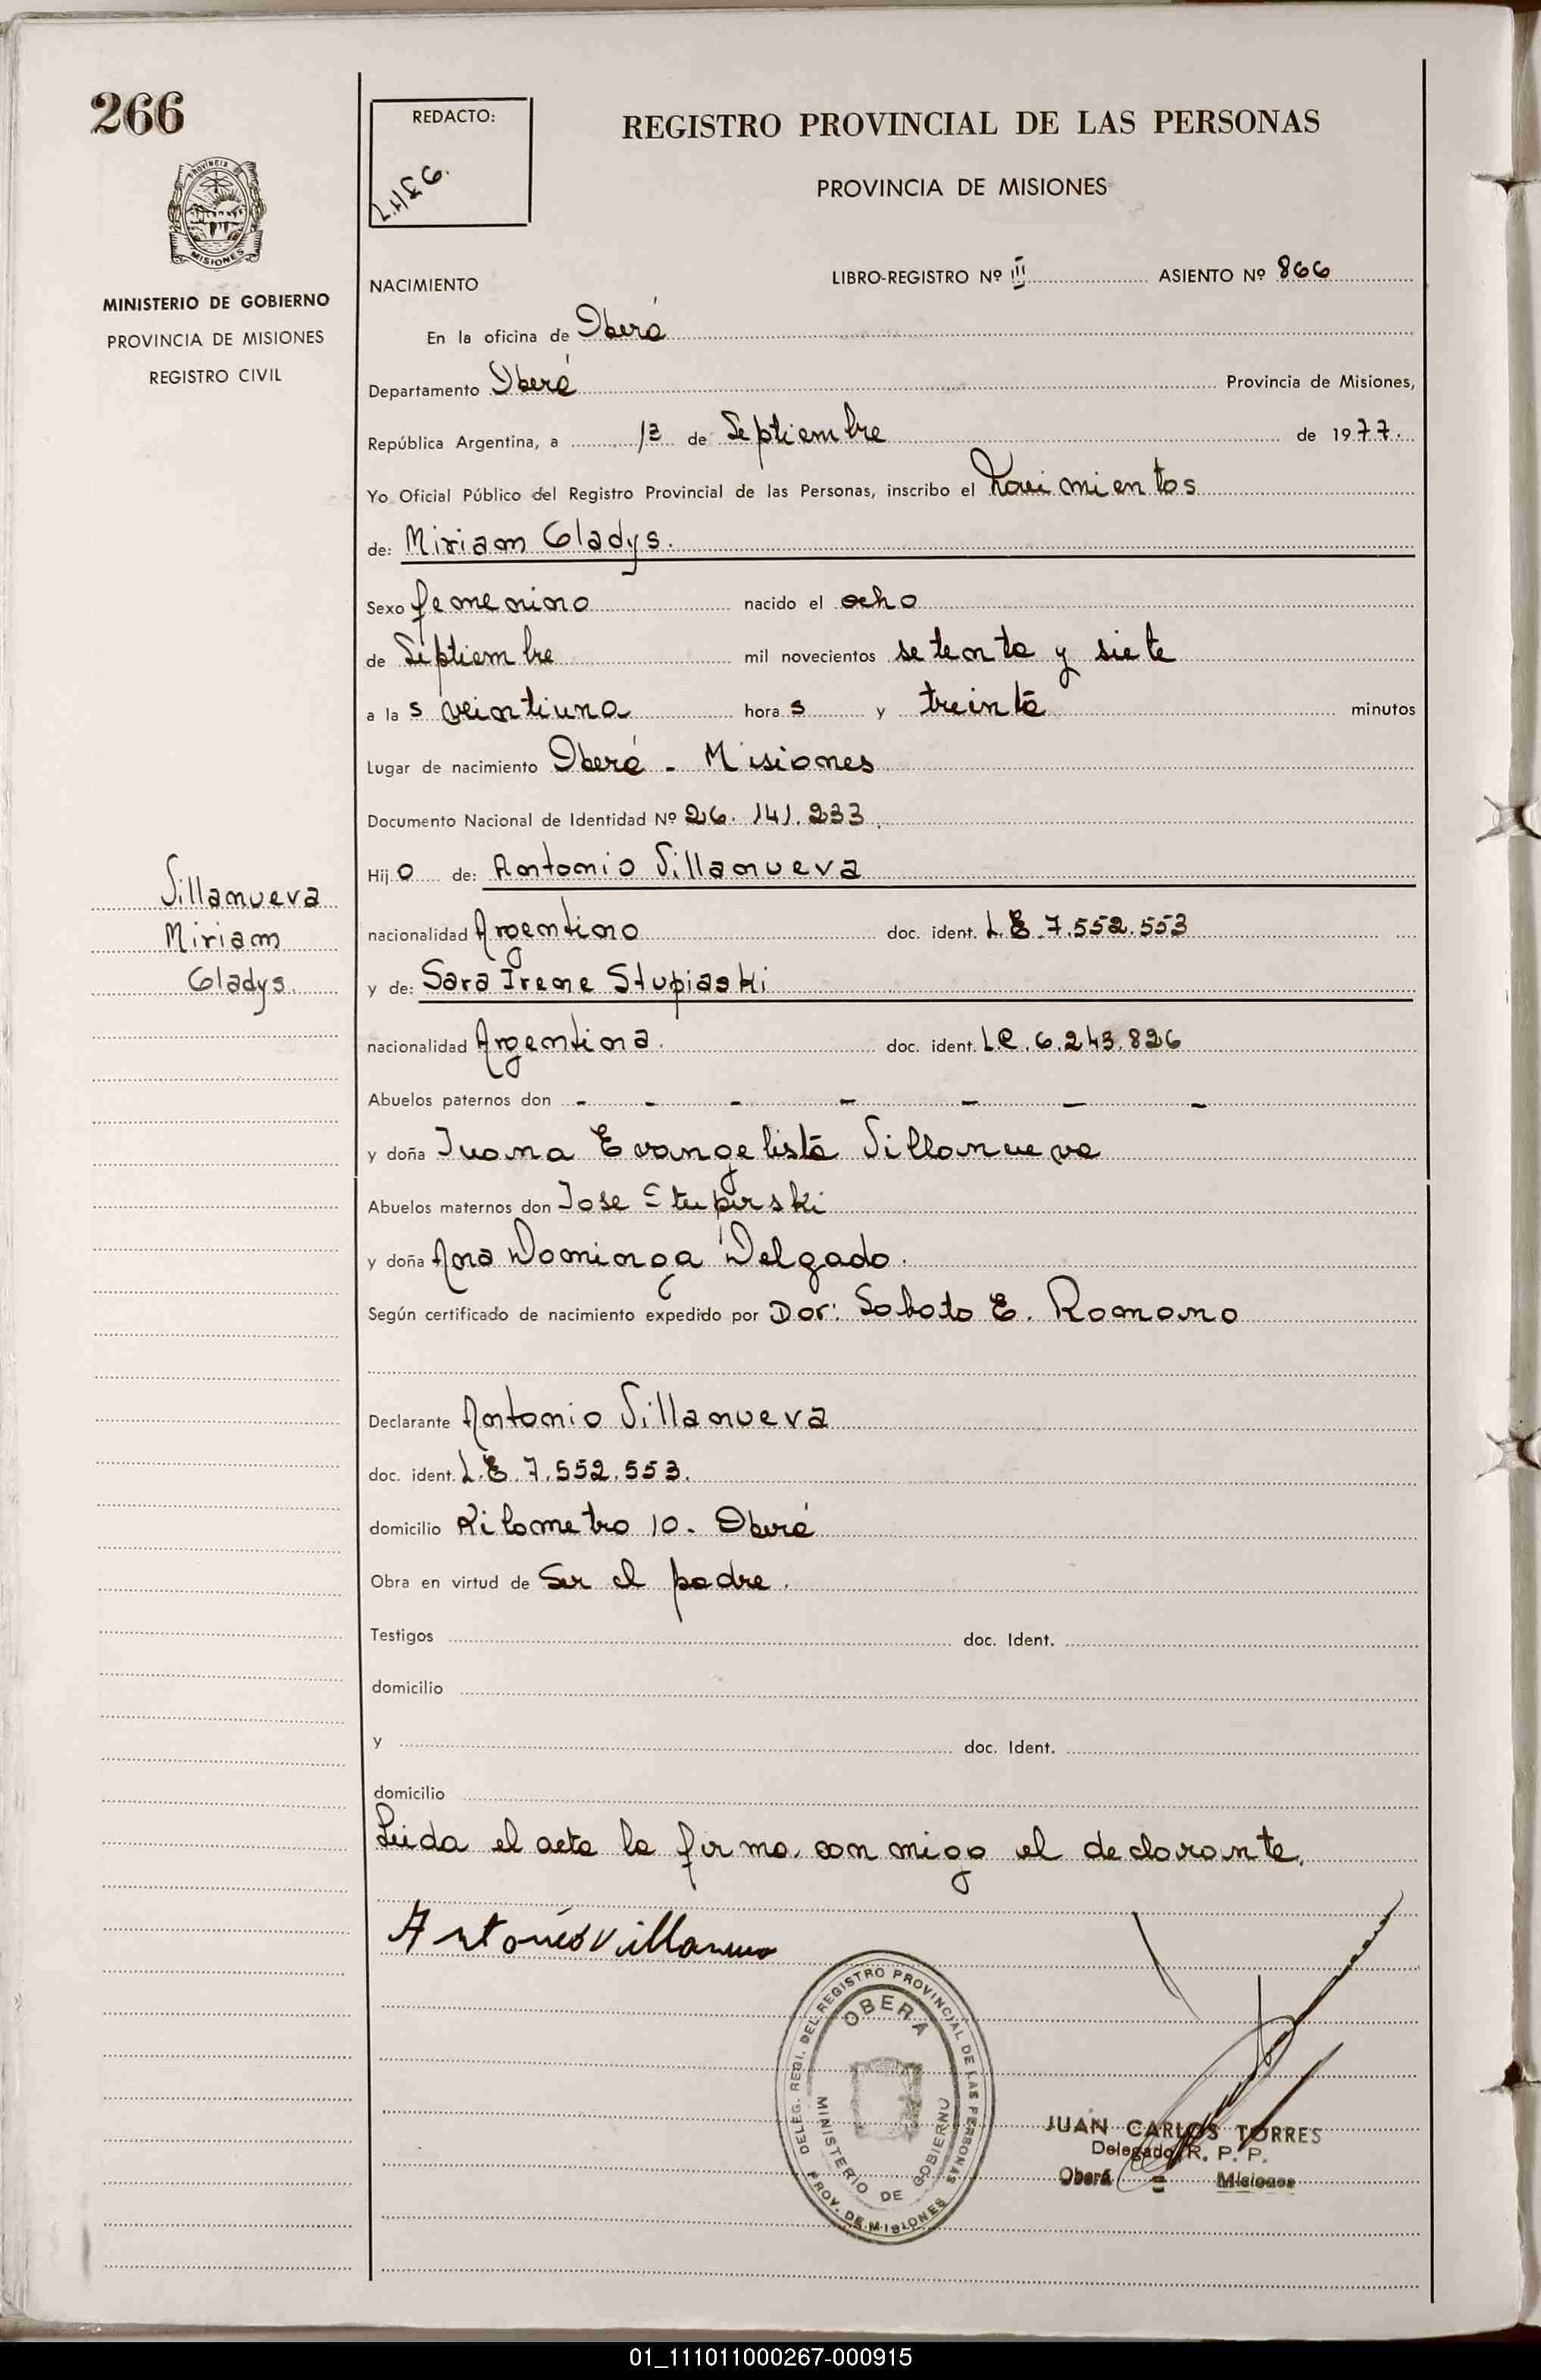 266
REDACTO:
REGISTRO PROVINCIAL DE LAS PERSONAS
PROVINCIA DE MISIONES
PROVINCIA
MISIONES
MINISTERIO DE GOBIERNO
PROVINCIA DE MISIONES
REGISTRO CIVIL
NACIMIENTO LIBRO-REGISTRO Nº III ASIENTO Nº 866
En la oficina de Oberá
Departamento Oberá Provincia de Misiones,
República Argentina, a 13 de Septiembre de 1977.
Yo Oficial Público del Registro Provincial de las Personas, inscribo el Nacimientos
de: Miriam Gladys.
Sexo femenino nacido el ocho
de Septiembre mil novecientos setenta y siete
a las veintiuna horas y treinta minutos
Lugar de nacimiento Oberá - Misiones
Documento Nacional de Identidad Nº 26.141.233.
Hija de: Antonio Villanueva
Villanueva
Miriam
Gladys.
nacionalidad Argentino doc. ident. L.E.7.552.553
y de: Sara Irene Stupiaski
nacionalidad Argentina. doc. ident. L.C.6.243.826
Abuelos paternos don - - - - - - -
y doña Juana Evangelista Villanueva
Abuelos maternos don Jose Stupirski
y doña Ana Dominga Delgado.
Según certificado de nacimiento expedido por Dor: Soboto E. Romano
Declarante Antonio Villanueva
doc. ident. L.E.7.552.553.
domicilio Kilometro 10. Oberá
Obra en virtud de Ser el padre.
Testigos doc. Ident.
domicilio
y doc. Ident.
domicilio
Leida el acta la firma conmigo el declarante.
Antonio Villanueva
DELEG. REGI. DEL REGISTRO PROVINCIAL DE LAS PERSONAS
OBERA
MINISTERIO DE GOBIERNO
PROV. DE MISIONES
JUAN CARLOS TORRES
Delegado R. P. P.
Oberá = Misiones
01_111011000267-000915